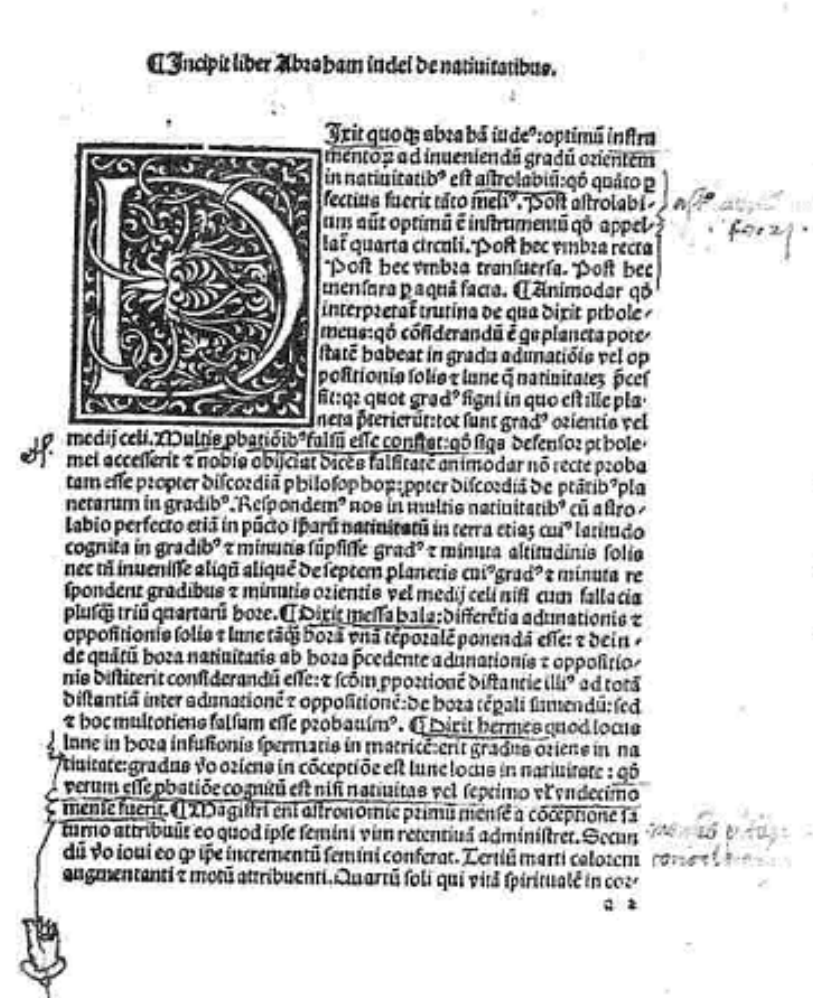 ¶Incipit liber Abraham iudei de natiuitatibus.
Dixit quoqꝫ abrahā iudeꝰ:optimū instru
mentoꝝ ad inueniendū gradū orientem
in natiuitatibꝰ est astrolabiū:qđ quāto ꝑ
fectius fuerit tāto meliꝰ. Post astrolabi⸗
um aūt optimū ē instrumentū qđ appel⸗
lat᷑ quarta circuli. Post hec vmbra recta
Post hec vmbra transuersa. Post hec
mensura ꝑ aquā facta. ¶Animodar qđ
interpretat᷑ trutina de qua dixit pthole⸗
meus:qđ cōsiderandū ē qs planeta pote⸗
statē habeat in gradu adunatiōis vel op
positionis solis ⁊ lune q̄ natiuitateꝫ p̄ces
sit:qꝛ quot gradꝰ signi in quo est ille pla⸗
neta p̄terierūt:tot sunt gradꝰ orientis vel
medij celi. Multis ꝓbatiōibꝰ falsū esse constat:qđ siqs defensor pthole⸗
mei accesserit ⁊ nobis obijciat dicēs falsitatē animodar nō recte proba
tam esse propter discordiā philosophoꝝ:ꝓpter discordiā de ptātibꝰ pla
netarum in gradibꝰ. Respondemꝰ nos in multis natiuitatibꝰ cū astro⸗
labio perfecto etiā in pūcto ip̄arū natiuitatū in terra etiaꝫ cuiꝰ latitudo
cognita in gradibꝰ ⁊ minutis sūpsisse gradꝰ ⁊ minuta altitudinis solis
nec tn̄ inuenisse aliqn̄ aliquē de septem planetis cuiꝰ gradꝰ ⁊ minuta re
spondent gradibus ⁊ minutis orientis vel medij celi nisi cum fallacia
plusqꝫ triū quartarū hore. ¶Dixit messahala:differētia adunationis ⁊
oppositionis solis ⁊ lune tāqꝫ horā vnā tēporalē ponendā esse: ⁊ dein⸗
de quātū hora natiuitatis ab hora p̄cedente adunationis ⁊ oppositio⸗
nis distiterit considerandū esse:⁊ scōm ꝓportionē distantie illiꝰ ad totā
distantiā inter adunationē ⁊ oppositionē:de hora tēpali sumendū:sed
⁊ hoc multotiens falsum esse probauimꝰ. ¶Dixit hermes quod locus
lune in hora infusionis spermatis in matricē:erit gradus oriens in na
tiuitate:gradus ꝟo oriens in cōceptiōe est lune locus in natiuitate : qđ
verum esse ꝓbatiōe cognitū est nisi natiuitas vel septimo vl̕ vndecimo
mense fuerit. ¶Magistri eni astronomie primū mensē a cōceptione sa
turno attribuūt eo quod ipse semini vim retentiuā administret. Secun
dū ꝟo ioui eo ꝙ ip̄e incrementū semini conferat. Tertiū marti calorem
augmentanti ⁊ motū attribuenti. Quartū soli qui vitā spiritualē in cor⸗
a 2